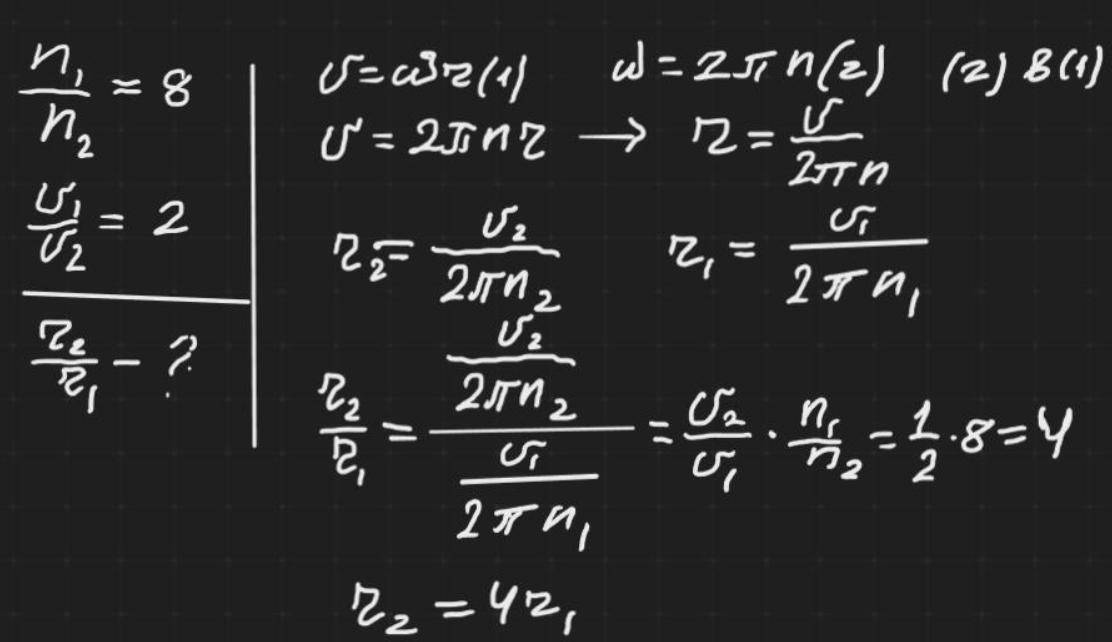 n₁/n₂ = 8
υ₁/υ₂ = 2
r₂/r₁ - ?
υ = ωr (1) ω = 2πn (2) (2) в (1)
υ = 2πnr → r = υ/2πn
r₂ = υ₂/2πn₂ r₁ = υ₁/2πn₁
r₂/r₁ = (υ₂/2πn₂)/(υ₁/2πn₁) = υ₂/υ₁ · n₁/n₂ = 1/2 · 8 = 4
r₂ = 4r₁